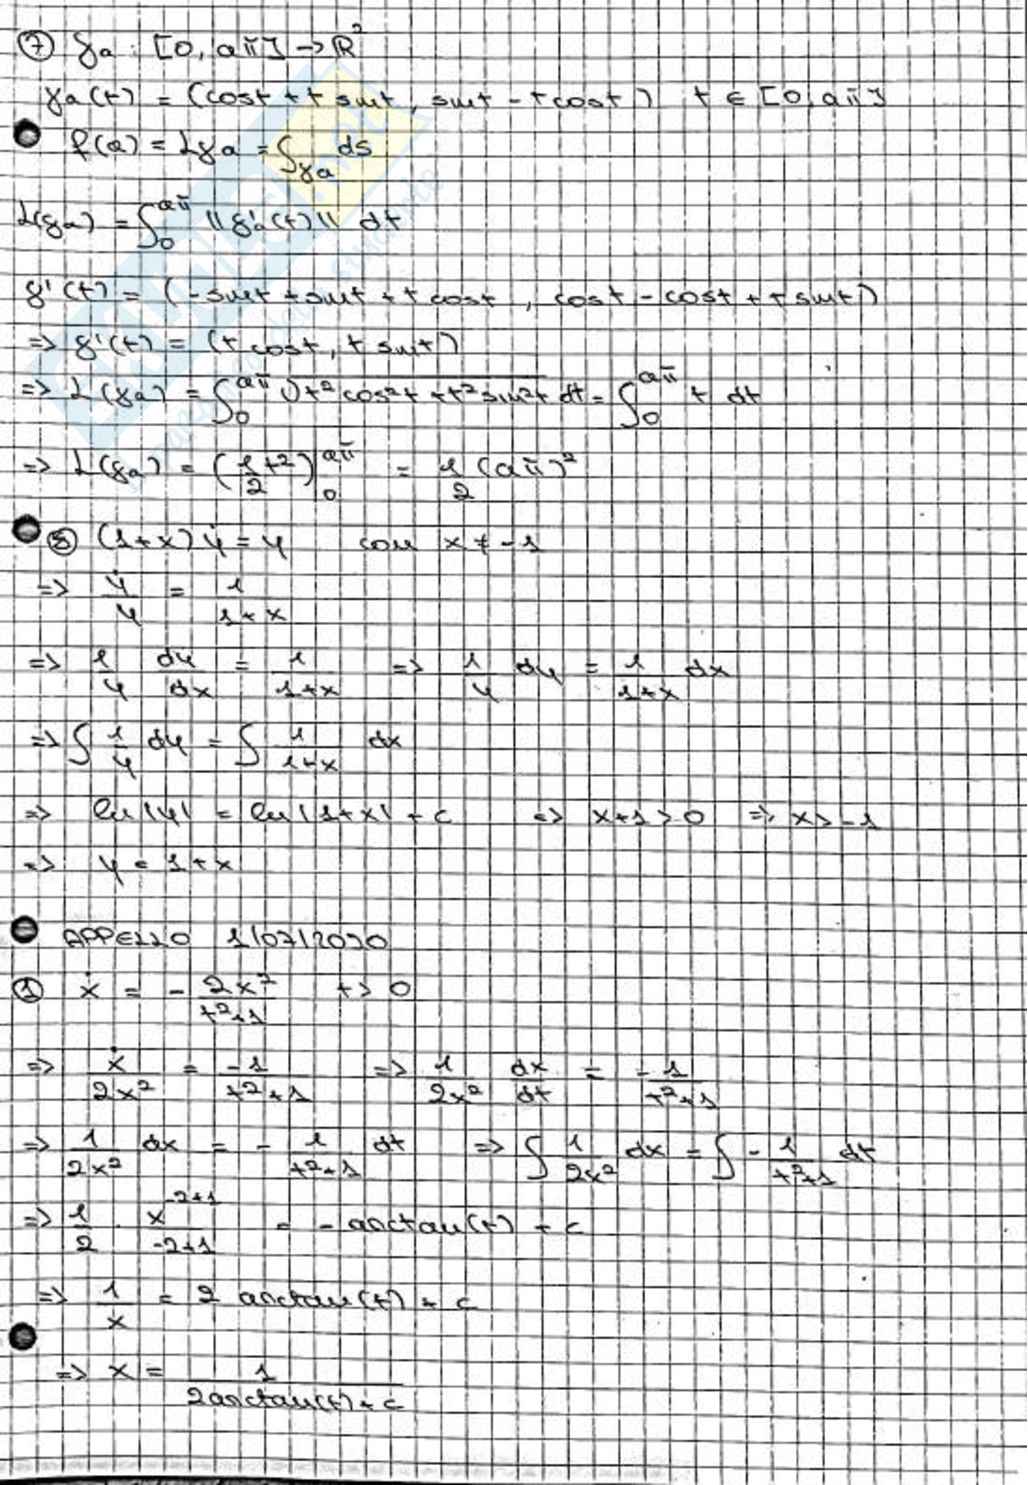 ⑦ γa : [0, aπ] → ℝ²
γa(t) = (cost + t sint, sint - t cost) t ∈ [0, aπ]
f(a) = Lγa = ∫γa ds
L(γa) = ∫₀^aπ ||γ'a(t)|| dt
γ'(t) = (-sint + sint + t cost, cost - cost + t sint)
=> γ'(t) = (t cost, t sint)
=> L(γa) = ∫₀^aπ √(t² cos²t + t² sin²t) dt = ∫₀^aπ t dt
=> L(γa) = (1/2 t²)₀^aπ = 1/2 (aπ)²
⑧ (1+x) ẏ = y con x ≠ -1
=> ẏ/y = 1/(1+x)
=> 1/y dy/dx = 1/(1+x) => 1/y dy = 1/(1+x) dx
=> ∫ 1/y dy = ∫ 1/(1+x) dx
=> ln|y| = ln|1+x| + c => x+1 > 0 => x > -1
=> y = 1+x
APPELLO 1/07/2020
① ẋ = - 2x²/(t²+1) t > 0
=> ẋ/2x² = -1/(t²+1) => 1/2x² dx/dt = -1/(t²+1)
=> 1/2x² dx = - 1/(t²+1) dt => ∫ 1/2x² dx = ∫ - 1/(t²+1) dt
=> 1/2 · x^(-2+1)/(-2+1) = - arctan(t) + c
=> 1/x = 2 arctan(t) + c
=> x = 1/(2arctan(t)+c)